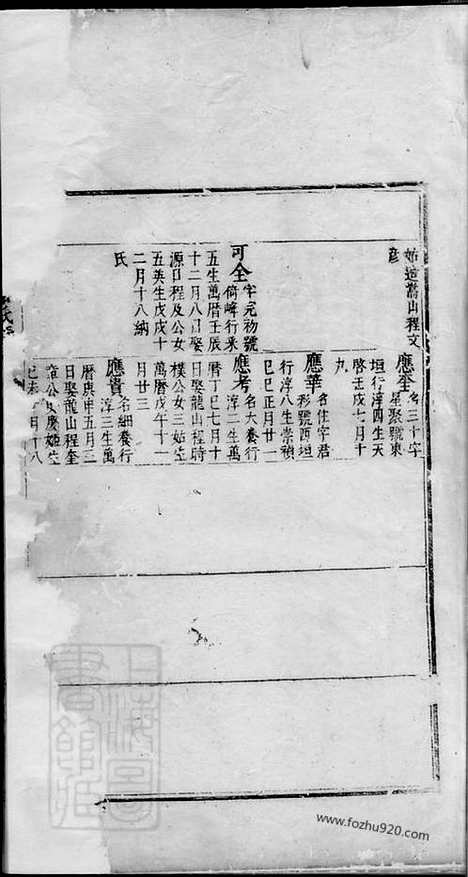 始遊嵩山程文
彥
可全字完初號
倚峰行采
五生萬曆壬辰
十二月八日娶
源口程及公女
五英生戊戌十
二月十八納
氏
應奎名三十字
星聚號東
垣行淳四生天
啓壬戌七月十
九
應華名佳字君
彩號西垣
行淳八生崇禎
己巳正月廿一
應考名大養行
淳二生萬
曆丁巳七月十
日娶龍山程時
樸公女三姑生
萬曆戊午十一
月廿三
應貴名細養行
淳三生萬
曆庚申五月三
日娶龍山程奎
公女慶姬生
己未 月十八
上海圖書館藏
www.fozhu920.com